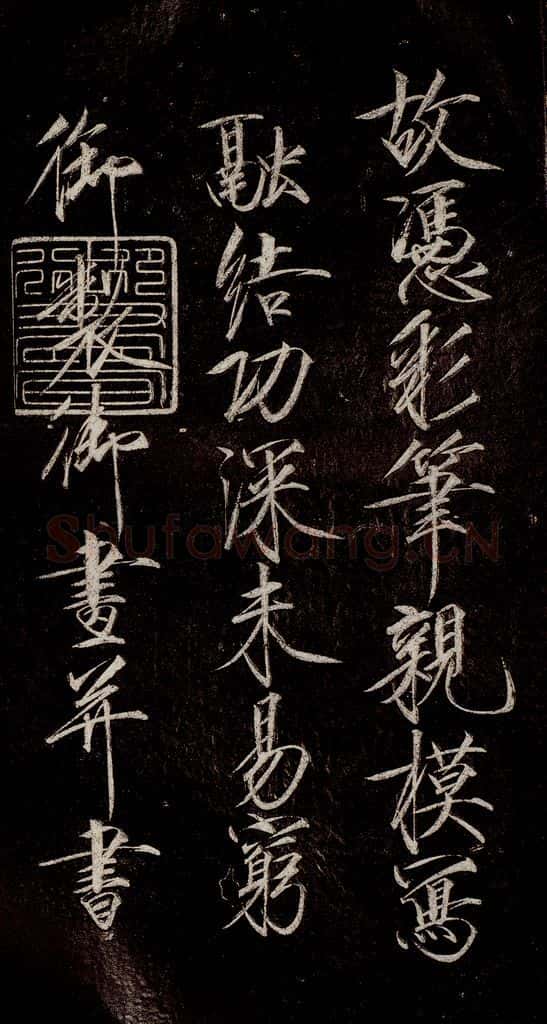 故憑彩筆親模寫
融結功深未易窮
御製御畫并書
Shufawang.CN